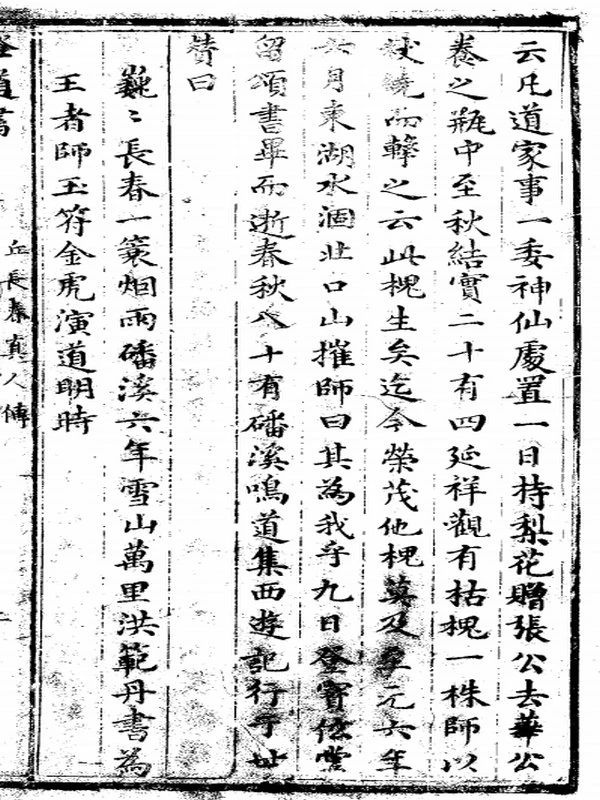 云凡道家事一委神仙處置一日持梨花贈張公去華公
養之瓶中至秋結實二十有四延祥觀有枯槐一株師以
杖繞而擊之云此槐生矣迄今榮茂他槐莫及至元六年
六月東湖水涸北口山摧師曰其為我乎九日登寶玄堂
留頌書畢而逝春秋八十有磻溪鳴道集西遊記行于世
贊曰
巍〻長春一簑烟雨磻溪六年雪山萬里洪範丹書為
王者師玉符金虎演道明時
丘長春真人傳